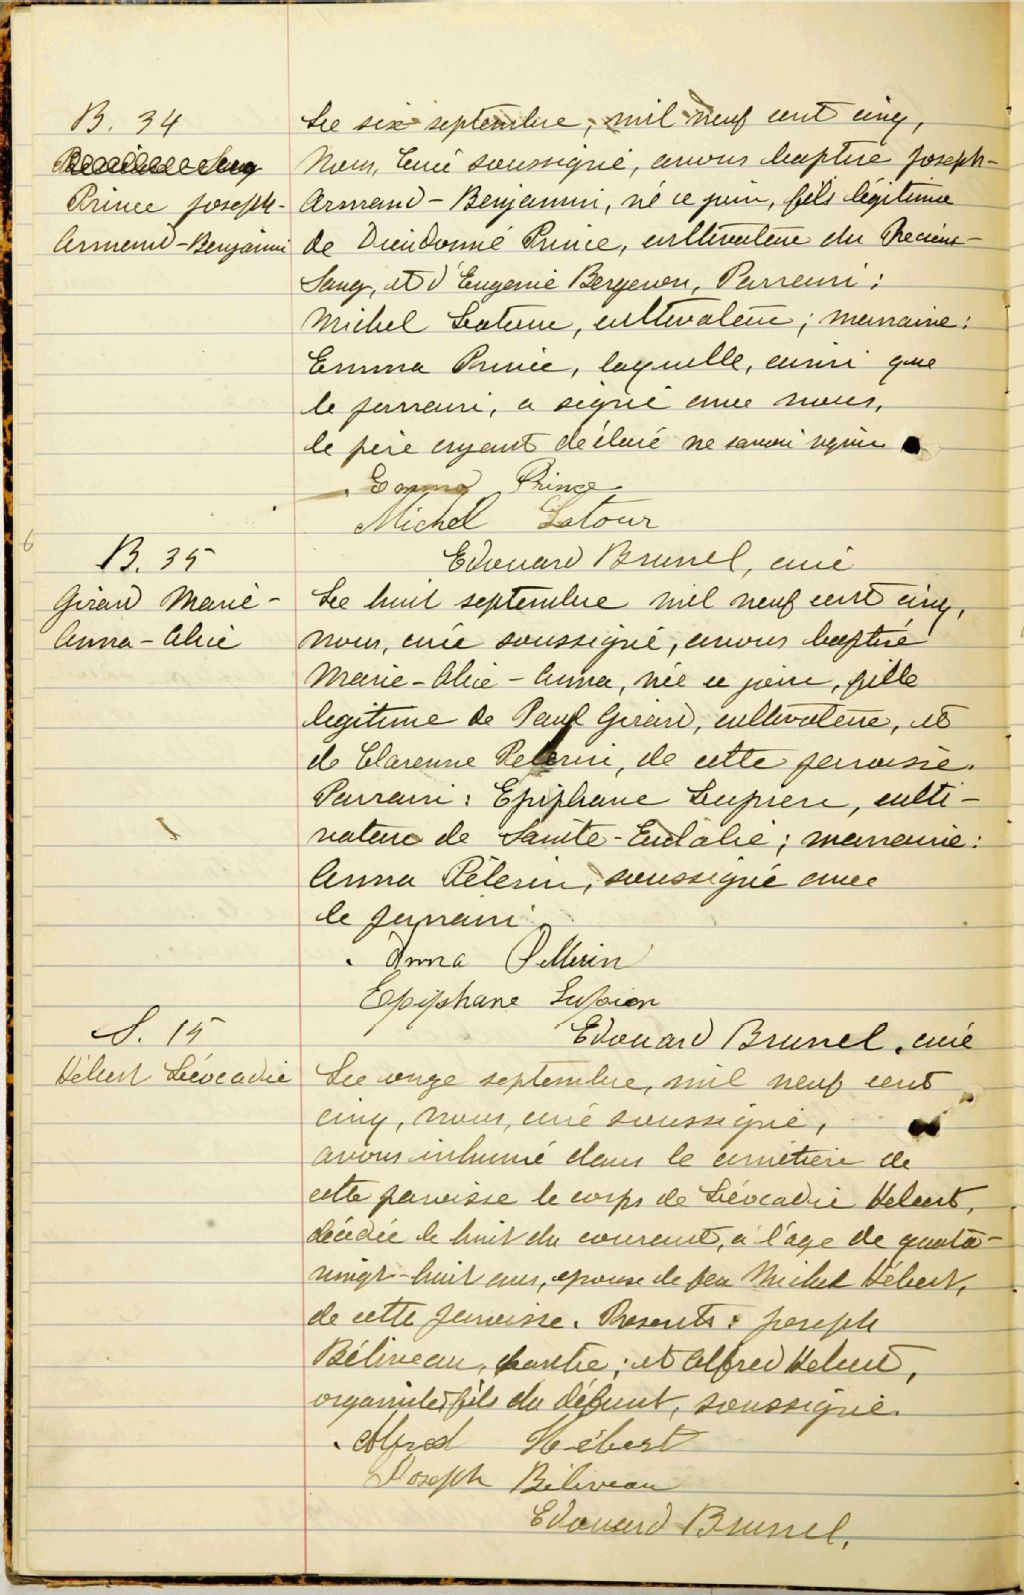 B. 34
Prince Joseph-
Armand-Benjamin
Le six septembre, mil neuf cent cinq,
Nous, Curé soussigné, avons baptisé Joseph-
Armand-Benjamin, né ce jour, fils légitime
de Dieudonné Prince, cultivateur du Précieux-
Sang, et d'Eugenie Bergeron, Parrain:
Michel Latour, cultivateur; marraine:
Emma Prince, laquelle, ainsi que
le parrain, a signé avec nous,
le père ayant déclaré ne savoir signer
Emma Prince
Michel Latour
Edouard Brunel, curé
B. 35
Girard Marie-
Anna-Alice
Le huit septembre mil neuf cent cinq,
nous, curé soussigné, avons baptisé
Marie-Alice-Anna, née ce jour, fille
legitime de Paul Girard, cultivateur, et
de Clarenne Pelerin, de cette paroisse.
Parrain: Epiphane Lupien, culti-
vateur de Sainte-Eulalie; marraine:
Anna Pélerin, soussigné avec
le parrain
Anna Pellerin
Epiphane Lupien
Edouard Brunel, curé
S. 15
Hébert Léocadie
Le onze septembre, mil neuf cent
cinq, nous, curé soussigné,
avons inhumé dans le cimétière de
cette paroisse le corps de Léocadie Hebert,
décédée le huit du courant, à l'âge de quatre-
vingt-huit ans, epouse de feu Michel Hébert,
de cette paroisse. Presents: Joseph
Béliveau, chantre; et Alfred Hebert,
organiste, fils du défunt, soussigné.
Alfred Hébert
Joseph Béliveau
Edouard Brunel,